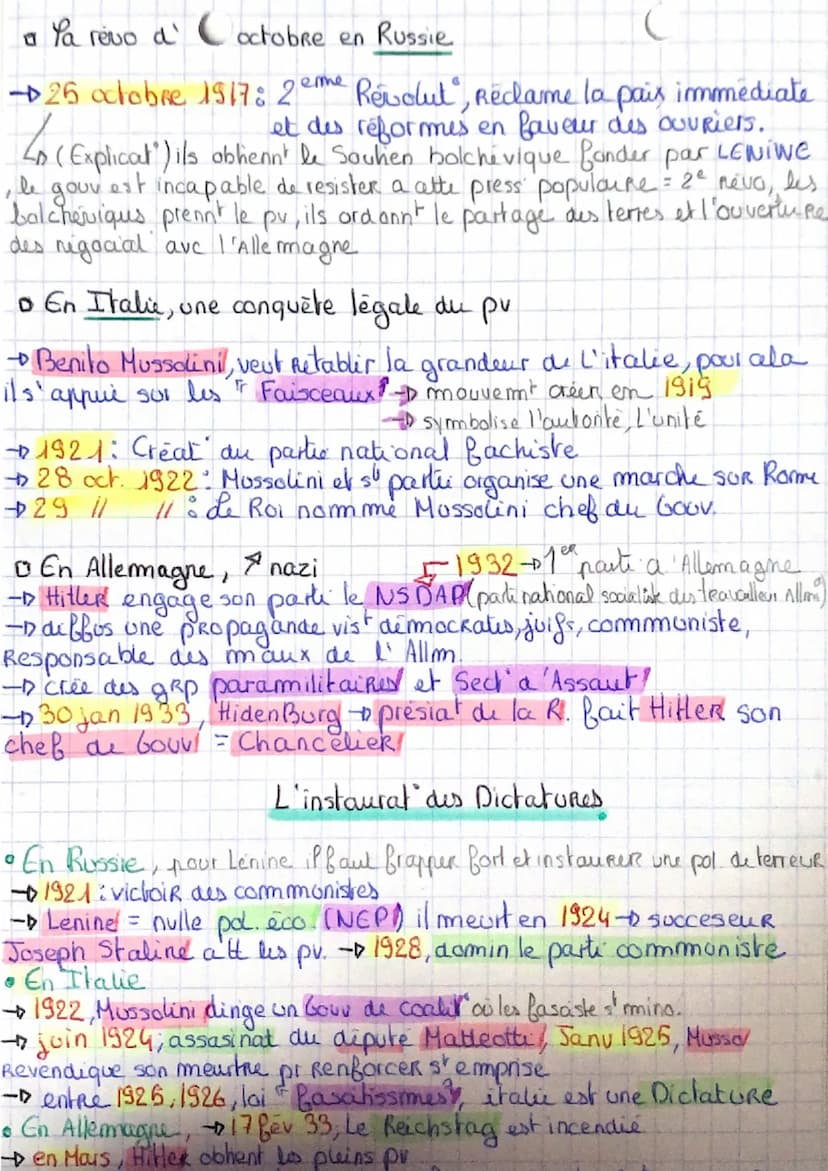 La révo d' octobre en Russie
→ 25 octobre 1917 : 2eme Révolut°, Réclame la paix immédiate
et des réformes en faveur des ouvriers.
↳ (Explicat°) ils obtienn^t le Soutien bolchévique fonder par LENINE
, le gouv est incapable de resister a cette press° populaire = 2e révo, les
bolchéviques prenn^t le pv, ils ordonn^t le partage des terres et l'ouverture
des négociat° avc l'Allemagne
En Italie, une conquête légale du pv
→ Benito Mussolini, veut Rétablir la grandeur de l'italie, pour cela
il s'appuie sur les "Faisceaux" → mouvem^t créer en 1919
→ symbolise l'autorité, l'unité
→ 1921 : Créat° du partie national fachiste
→ 28 oct. 1922 : Mussolini et s^n partie organise une marche sur Rome
→ 29 // // : Le Roi nomme Mussolini chef du Gouv.
En Allemagne, ↗ nazi 1932 → 1er parti d'Allemagne
→ Hitler engage son parti le NSDAP (parti national socialiste des travailleur Allm^d)
→ diffus une propagande vis^t démocrates, juifs, communiste,
Responsable des maux de l'Allm.
→ crée des grp paramilitaires et Sect° d'Assaut
→ 30 jan 1933, HidenBurg → présid^t de la R. fait Hitler son
chef de Gouv = Chancelier
L'instaurat° des Dictatures
• En Russie, pour Lénine il faut frapper fort et instaurer une pol. de terreur
→ 1921 : victoir des communistes
→ Lenine = nvlle pol. éco. (NEP) il meurt en 1924 → succeseur
Joseph Staline a tt les pv. → 1928, domin le parti communiste
• En Italie
→ 1922, Mussolini dirige un Gouv de coalit° où les fasciste s^t mino.
→ juin 1924, assasinat du député Matteotti, Janv 1925, Musso
Revendique son meurtre pr Renforcer s^n emprise
→ entre 1925, 1926, loi "fascistissmes", italie est une Dictature
• En Allemagne, → 17 fév 33, Le Reichstag est incendié
→ en Mars, Hitler obtient les pleins pv